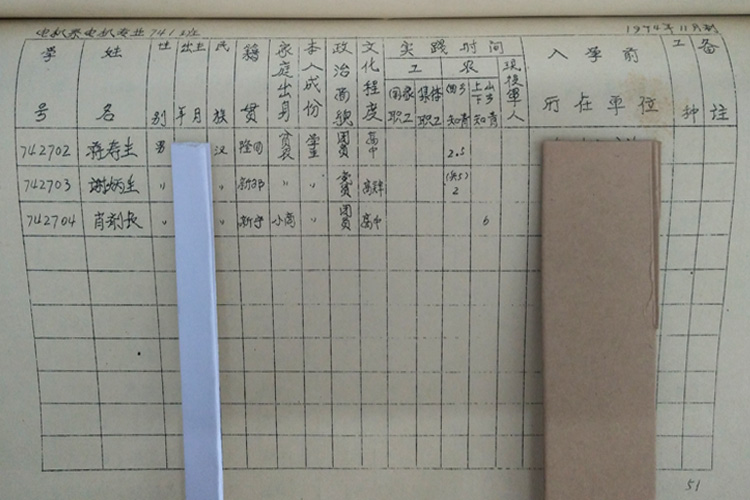 电机系电机专业7412班 1974年11月制
学号 姓名 性别 出生年月 民族 籍贯 家庭出身 本人成份 政治面貌 文化程度 实践时间 现役军人 入学前所在单位 工种 备注
工 农
国家职工 集体职工 回乡知青 上山下乡知青
742702 蒋寿生 男 汉 隆回 贫农 学生 团员 高中 2.5
742703 谢炳生 〃 〃 新邵 〃 〃 党员 高肄 2
742704 肖剥长 〃 〃 新宁 小商 〃 团员 高中 6
51